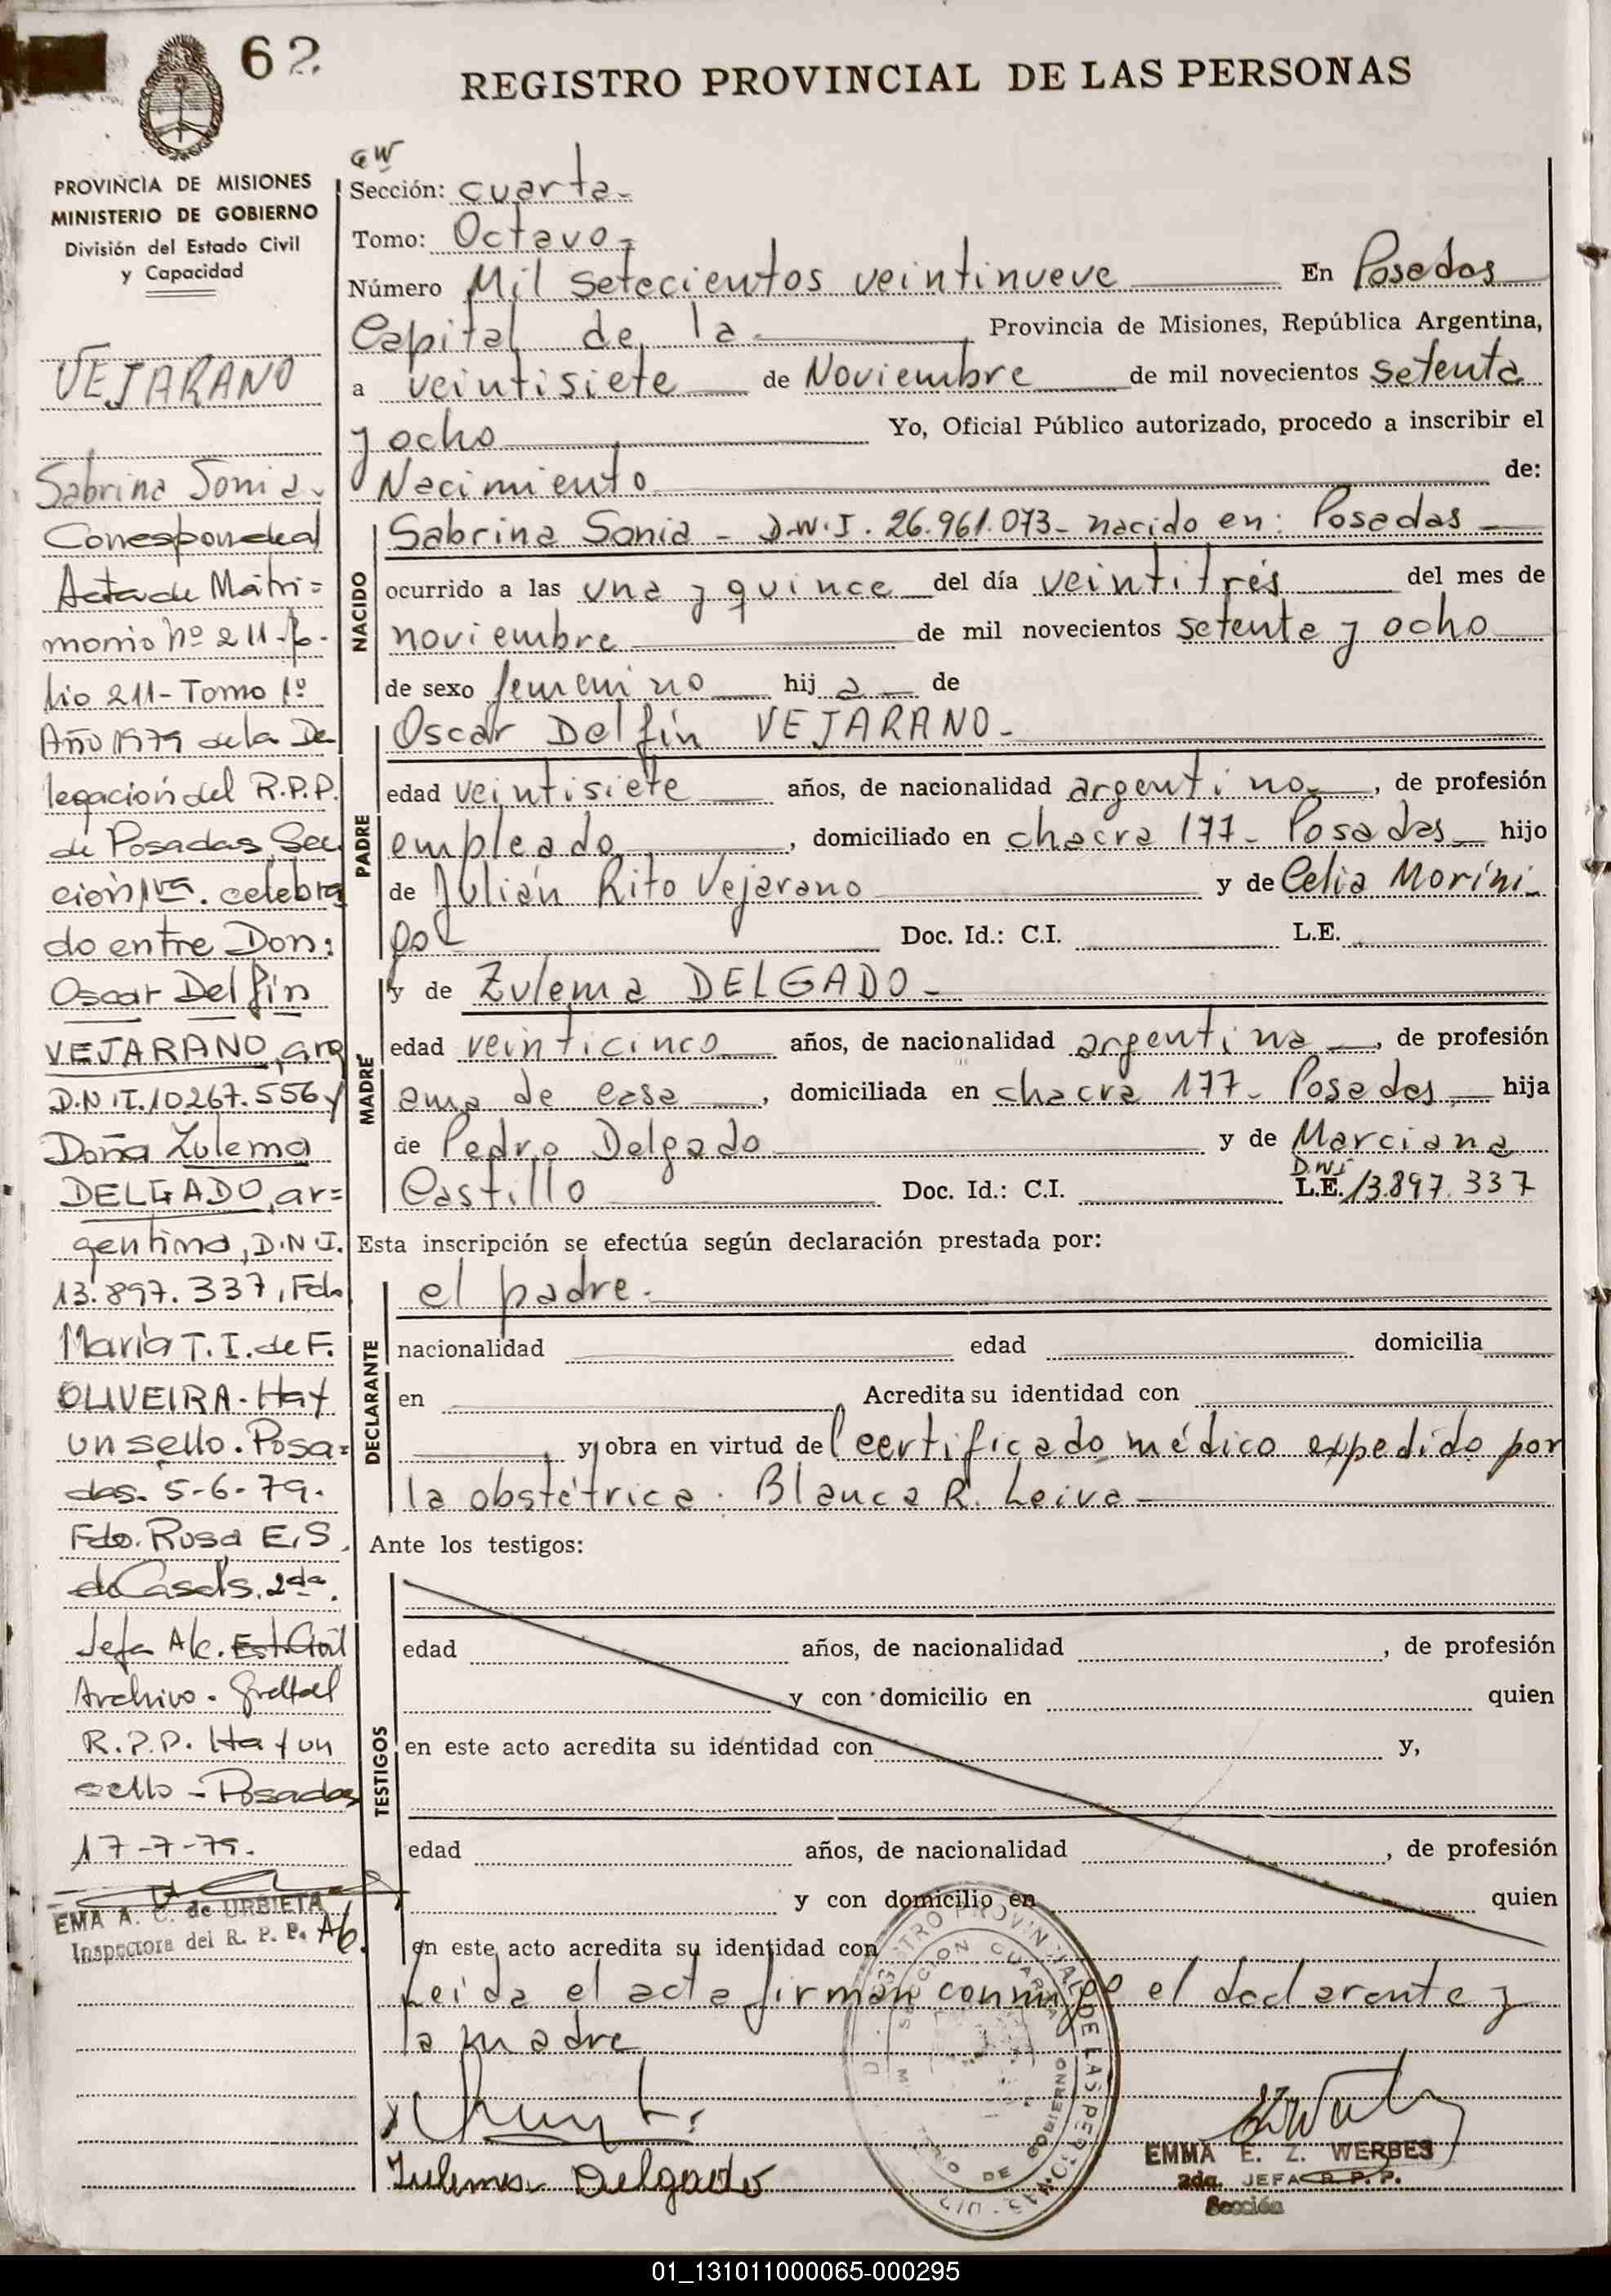 62
REGISTRO PROVINCIAL DE LAS PERSONAS
PROVINCIA DE MISIONES
MINISTERIO DE GOBIERNO
División del Estado Civil
y Capacidad
VEJARANO
Sabrina Sonia
Corresponde al
Acta de Matri=
monio Nº 211-fo-
lio 211- Tomo 1º
Año 1979 de la De
legación del R.P.P.
de Posadas, Sec
ción 1ra. celebra
do entre Don:
Oscar Delfín
VEJARANO, arg
D.N.I. 10267.556 y
Doña Zulema
DELGADO, ar=
gentina, D.N.I.
13.897.337, Fdo
María T. I. de F.
OLIVEIRA. Hay
un sello. Posa=
das. 5-6-79.
Fdo. Rosa E. S.
de Casals, 2da.
Jefa A/c. Est. Civil
Archivo. Gral
R.P.P. Hay un
sello - Posadas
17-7-79.
EMA A. C. de URBIETA
Inspectora del R. P. P. A/c.
GW
Sección: cuarta-
Tomo: Octavo-
Número Mil setecientos veintinueve En Posadas
Capital de la Provincia de Misiones, República Argentina,
a veintisiete de Noviembre de mil novecientos setenta
y ocho Yo, Oficial Público autorizado, procedo a inscribir el
Nacimiento de:
NACIDO
Sabrina Sonia - D.N.I. 26.961.073- nacido en: Posadas
ocurrido a las una y quince del día veintitrés del mes de
noviembre de mil novecientos setenta y ocho
de sexo femenino hij a de
PADRE
Oscar Delfín VEJARANO-
edad veintisiete años, de nacionalidad argentino, de profesión
empleado, domiciliado en chacra 177- Posadas hijo
de Julián Rito Vejarano y de Celia Moríni-
go Doc. Id.: C.I. L.E.
MADRE
y de Zulema DELGADO-
edad veinticinco años, de nacionalidad argentina, de profesión
ama de casa, domiciliada en chacra 177- Posadas, hija
de Pedro Delgado y de Marciana
Castillo Doc. Id.: C.I. DNI L.E. 13.897.337
Esta inscripción se efectúa según declaración prestada por:
DECLARANTE
el padre.
nacionalidad edad domicilia
en Acredita su identidad con
y obra en virtud del certificado médico expedido por
la obstétrica. Blanca R. Leiva-
Ante los testigos:
TESTIGOS
edad años, de nacionalidad , de profesión
y con domicilio en quien
en este acto acredita su identidad con y,
edad años, de nacionalidad , de profesión
y con domicilio en quien
en este acto acredita su identidad con
Leída el acta firman conmigo el declarante y
la madre
Zulema Delgado
EMMA E. Z. WERBES
2da. JEFA R. P. P.
Sección
01_131011000065-000295